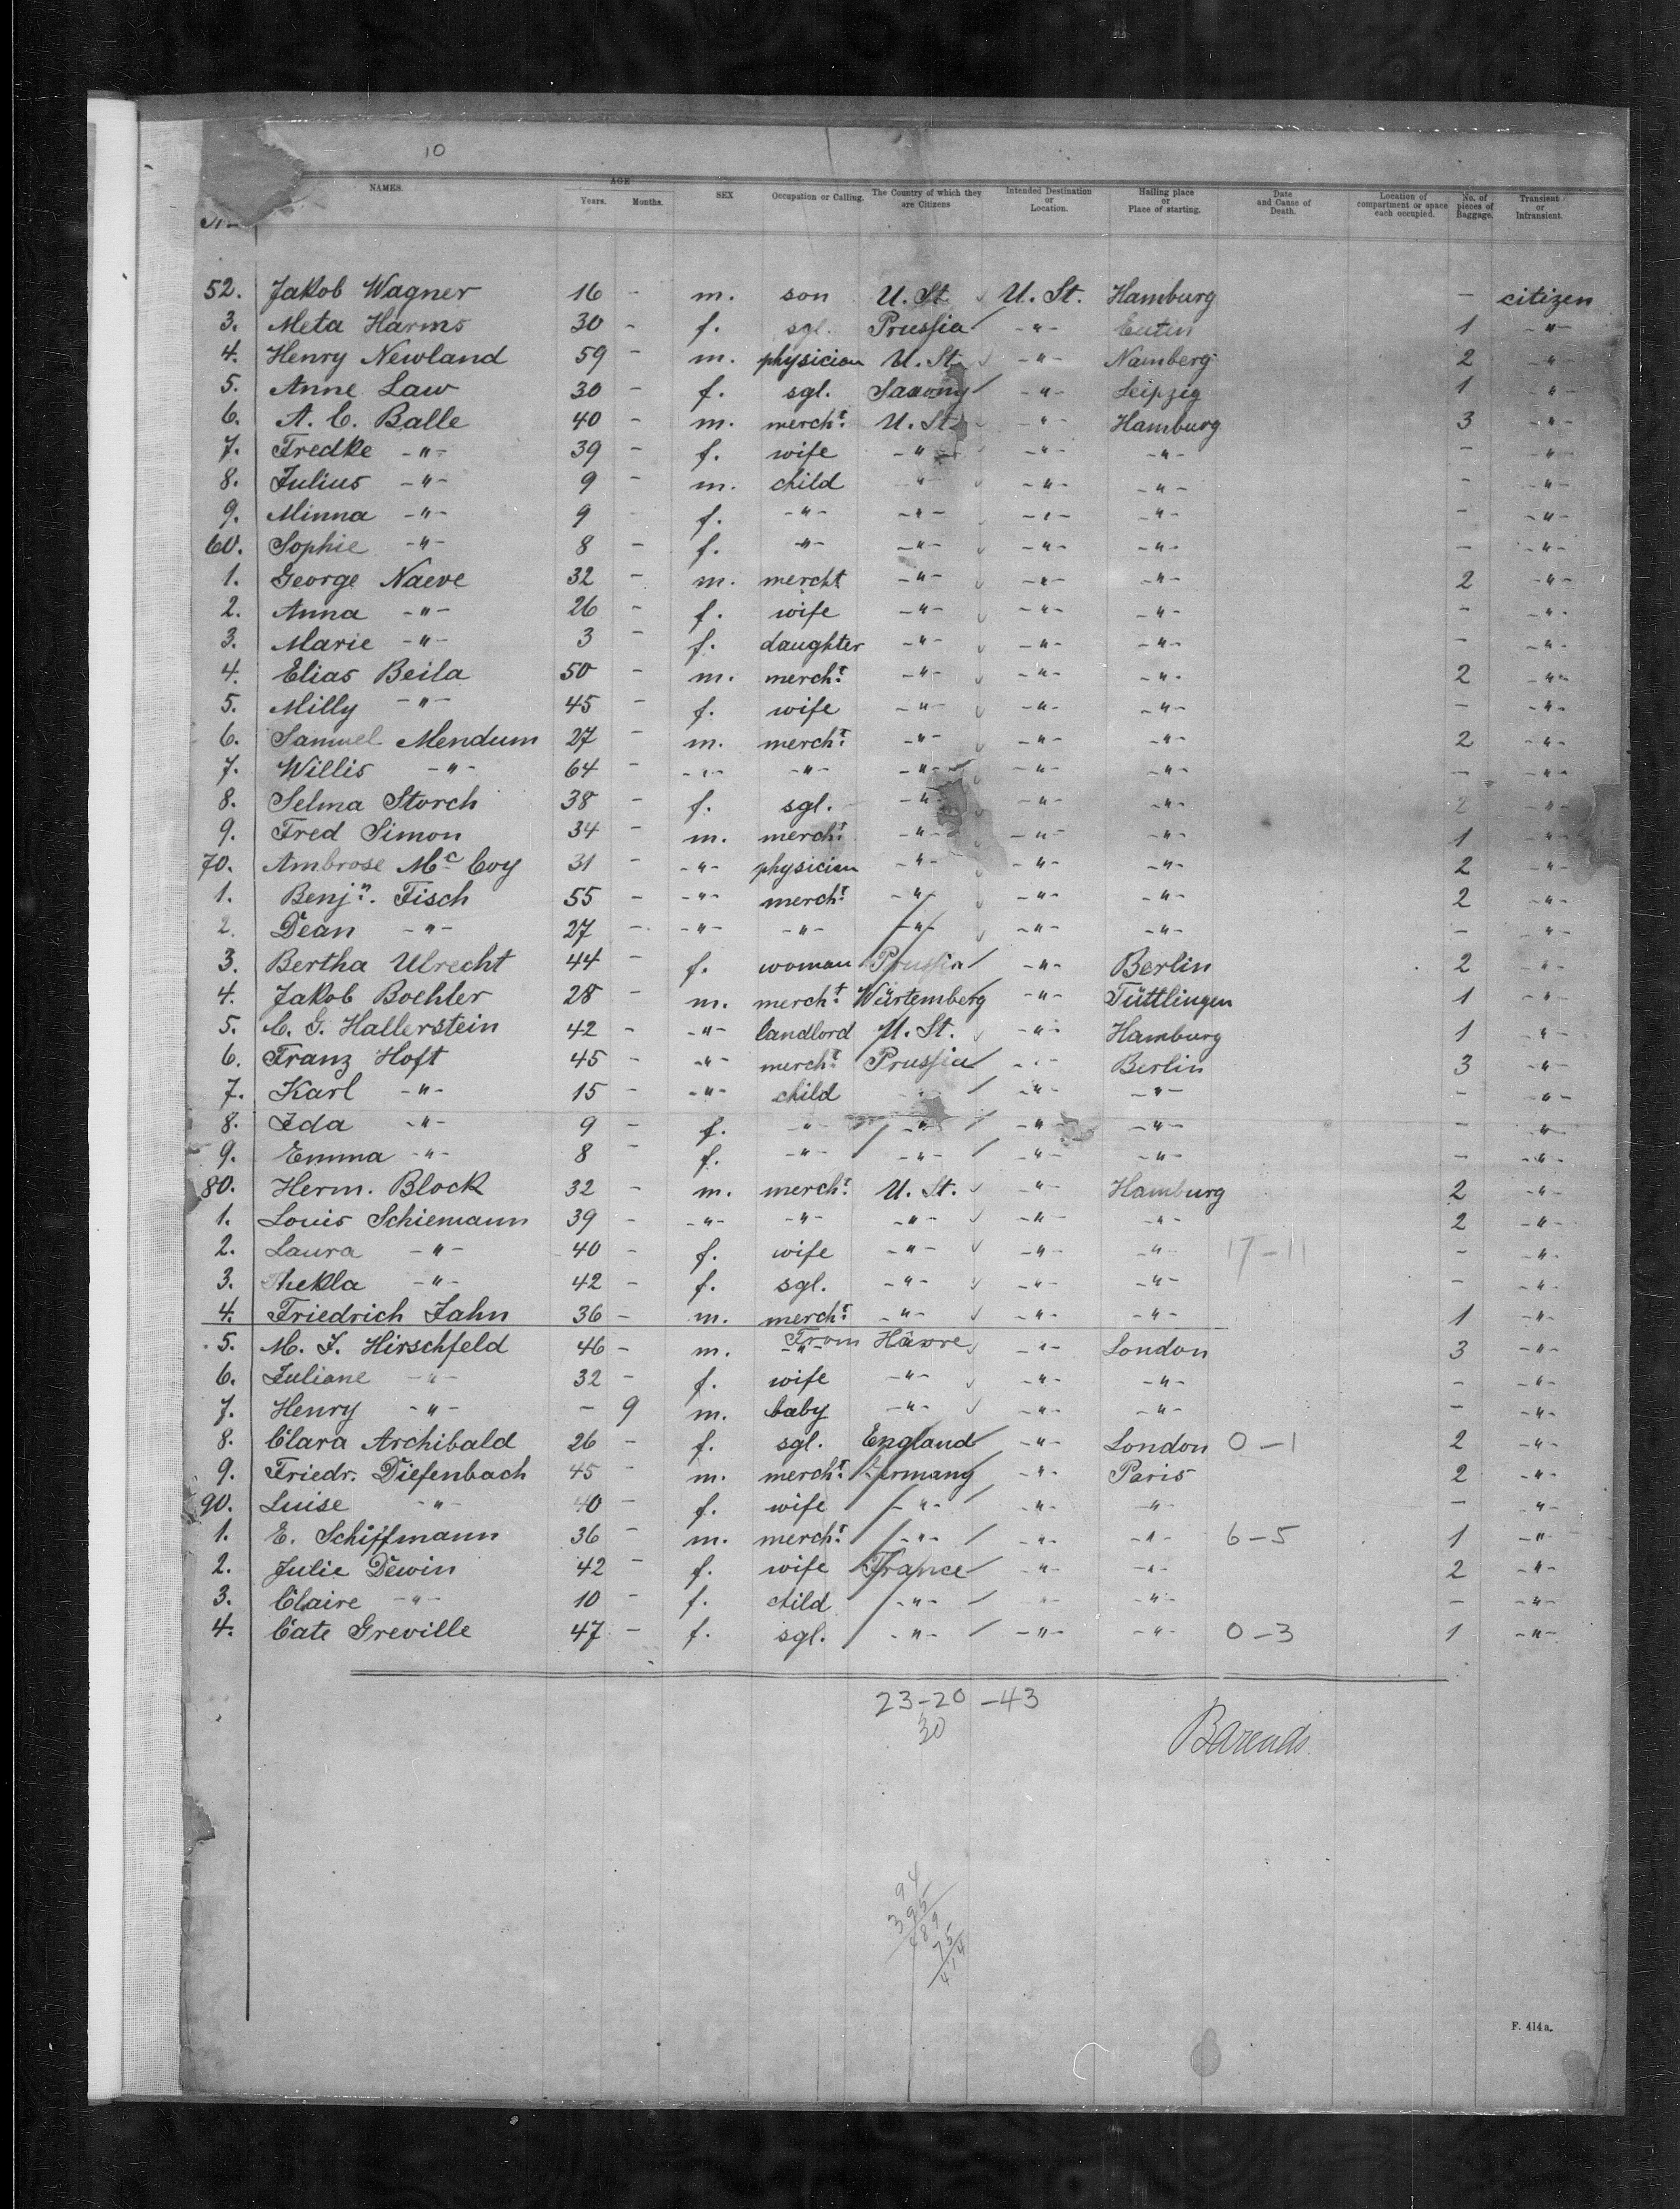 10
No NAMES. AGE Years. Months. SEX Occupation or Calling. The Country of which they are Citizens Intended Destination or Location. Hailing place or Place of starting. Date and Cause of Death. Location of compartment or space each occupied. No. of pieces of Baggage. Transient or Intransient.
52. Jakob Wagner 16 - m. son U. St. U. St. Hamburg - citizen
3. Meta Harms 30 - f. sgl. Prussia -"- Eutin 1 -"-
4. Henry Newland 59 - m. physician U. St. -"- Namberg 2 -"-
5. Anne Law 30 - f. sgl. Saxony -"- Leipzig 1 -"-
6. A. C. Balle 40 - m. mercht. U. St. -"- Hamburg 3 -"-
7. Fredke -"- 39 - f. wife -"- -"- -"- - -"-
8. Julius -"- 9 - m. child -"- -"- -"- - -"-
9. Minna -"- 9 - f. -"- -"- -"- -"- - -"-
60. Sophie -"- 8 - f. -"- -"- -"- -"- - -"-
1. George Naeve 32 - m. mercht -"- -"- -"- 2 -"-
2. Anna -"- 26 - f. wife -"- -"- -"- - -"-
3. Marie -"- 3 - f. daughter -"- -"- -"- - -"-
4. Elias Beila 50 - m. mercht. -"- -"- -"- 2 -"-
5. Milly -"- 45 - f. wife -"- -"- -"- - -"-
6. Samuel Mendum 27 - m. mercht. -"- -"- -"- 2 -"-
7. Willis -"- 64 - -"- -"- -"- -"- -"- - -"-
8. Selma Storch 38 - f. sgl. -"- -"- -"- 2 -"-
9. Fred Simon 34 - m. mercht. -"- -"- -"- 1 -"-
70. Ambrose Mc Coy 31 - -"- physician -"- -"- -"- 2 -"-
1. Benjn. Fisch 55 - -"- mercht. -"- -"- -"- 2 -"-
2. Dean -"- 27 - -"- -"- -"- -"- -"- - -"-
3. Bertha Ulrecht 44 - f. woman Prussia -"- Berlin 2 -"-
4. Jakob Boehler 28 - m. mercht. Würtemberg -"- Tüttlingen 1 -"-
5. C. G. Hallerstein 42 - -"- landlord U. St. -"- Hamburg 1 -"-
6. Franz Hoft 45 - -"- mercht. Prussia -"- Berlin 3 -"-
7. Karl -"- 15 - -"- child -"- -"- -"- - -"-
8. Ida -"- 9 - f. -"- -"- -"- -"- - -"-
9. Emma -"- 8 - f. -"- -"- -"- -"- - -"-
80. Herm. Block 32 - m. mercht. U. St. -"- Hamburg 2 -"-
1. Louis Schiemann 39 - -"- -"- -"- -"- -"- 2 -"-
2. Laura -"- 40 - f. wife -"- -"- -"- 17-11 - -"-
3. Thekla -"- 42 - f. sgl. -"- -"- -"- - -"-
4. Friedrich Jahn 36 - m. mercht. -"- -"- -"- 1 -"-
From Hâvre
5. M. J. Hirschfeld 46 - m. -"- -"- London 3 -"-
6. Juliane -"- 32 - f. wife -"- -"- -"- - -"-
7. Henry -"- - 9 m. baby -"- -"- -"- - -"-
8. Clara Archibald 26 - f. sgl. England -"- London 0-1 2 -"-
9. Friedr. Diefenbach 45 - m. mercht. Germany -"- Paris 2 -"-
90. Luise -"- 40 - f. wife -"- -"- -"- - -"-
1. E. Schiffmann 36 - m. mercht. -"- -"- -"- 6-5 1 -"-
2. Julie Dewin 42 - f. wife France -"- -"- 2 -"-
3. Claire -"- 10 - f. child -"- -"- -"- - -"-
4. Cate Greville 47 - f. sgl. -"- -"- -"- 0-3 1 -"-
23-20-43
30
Barends.
94
395
489
75
414
F. 414 a.